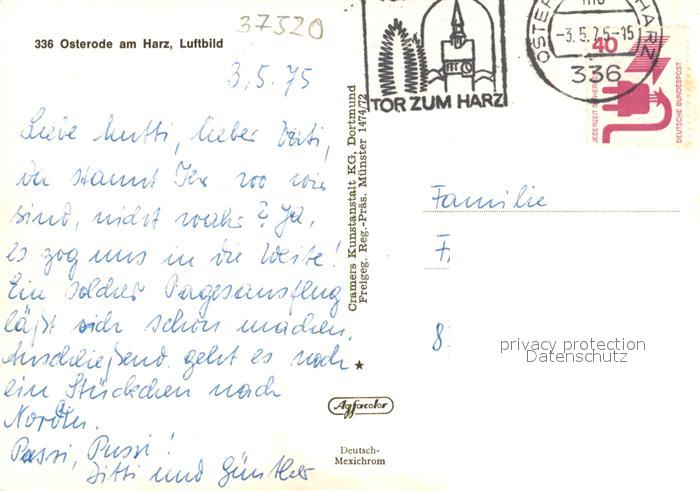 37320
336 Osterode am Harz, Luftbild
TOR ZUM HARZ
OSTER HARZ
-3.5.75-15
336
40
JEDERZEIT SICHERHEIT
DEUTSCHE BUNDESPOST
3.5.75
Liebe Mutti, lieber Vati,
da staunt Ihr, wo wir
sind, nicht wahr? Ja,
es zog uns in die Weite!
Ein solcher Tagesausflug
läßt sich schön machen.
Anschließend geht es noch
ein Stückchen nach
Norden.
Bussi, Bussi!
Sitti und Günther
Cramers Kunstanstalt KG, Dortmund
Freigeg. Reg.-Präs. Münster 1474/72
Agfacolor
Deutsch-
Mexichrom
Familie
F
8
privacy protection
Datenschutz